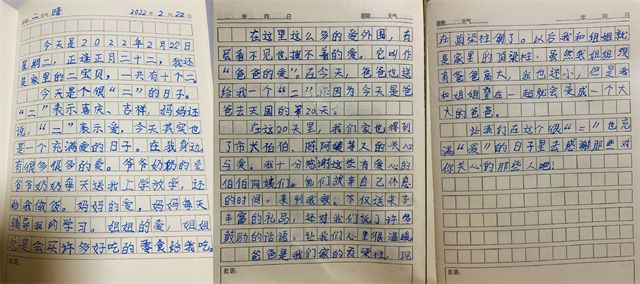 星期二 天气 晴 2022年2月22日
今天是2022年2月22日
星期二，正逢正月二十二，我还
是家里的二宝贝，一共有十个二
今天是个很“二”的日子。
“二”表示喜庆、吉祥，妈妈还
说，“二”表示爱，今天其实也
是一个充满爱的日子。在我身边，
有很多很多的爱。爷爷奶奶的爱，
爷爷奶奶每天送我上学放学，还
给我做饭。妈妈的爱，妈妈每天
辅导我的学习。姐姐的爱，姐姐
总是会买许多好吃的零食给我吃。
批语：
年 月 日 星期 天气
在这里这么多的爱外围，有
层看不见也摸不着的爱。它叫作
“爸爸的爱”。在今天，爸爸也送
给我一个“二”，因为今天是爸
爸去天国的第20天。
在这20天里，我们家也得到
了市大伯伯、阿姨等人的关心
与爱。我十分感谢这些有爱心的
伯伯阿姨们。他们放弃自己休息
的时间，来到我家，不仅送来了
丰富的礼品，还对我们说了许多
鼓励的话语，让我们心里很温暖。
爸爸是我们家的顶梁柱，现
批语：
年 月 日 星期 天气
在顶梁柱倒了。以后我和姐姐就
是家里的顶梁柱，虽然我姐姐没
有爸爸高大，我也还小，但是我
和姐姐在一起就会变成一个大
大的爸爸。
让我们在这个很“二”也充
满“爱”的日子里去感谢那些对
你关心的那些人吧！
批语：